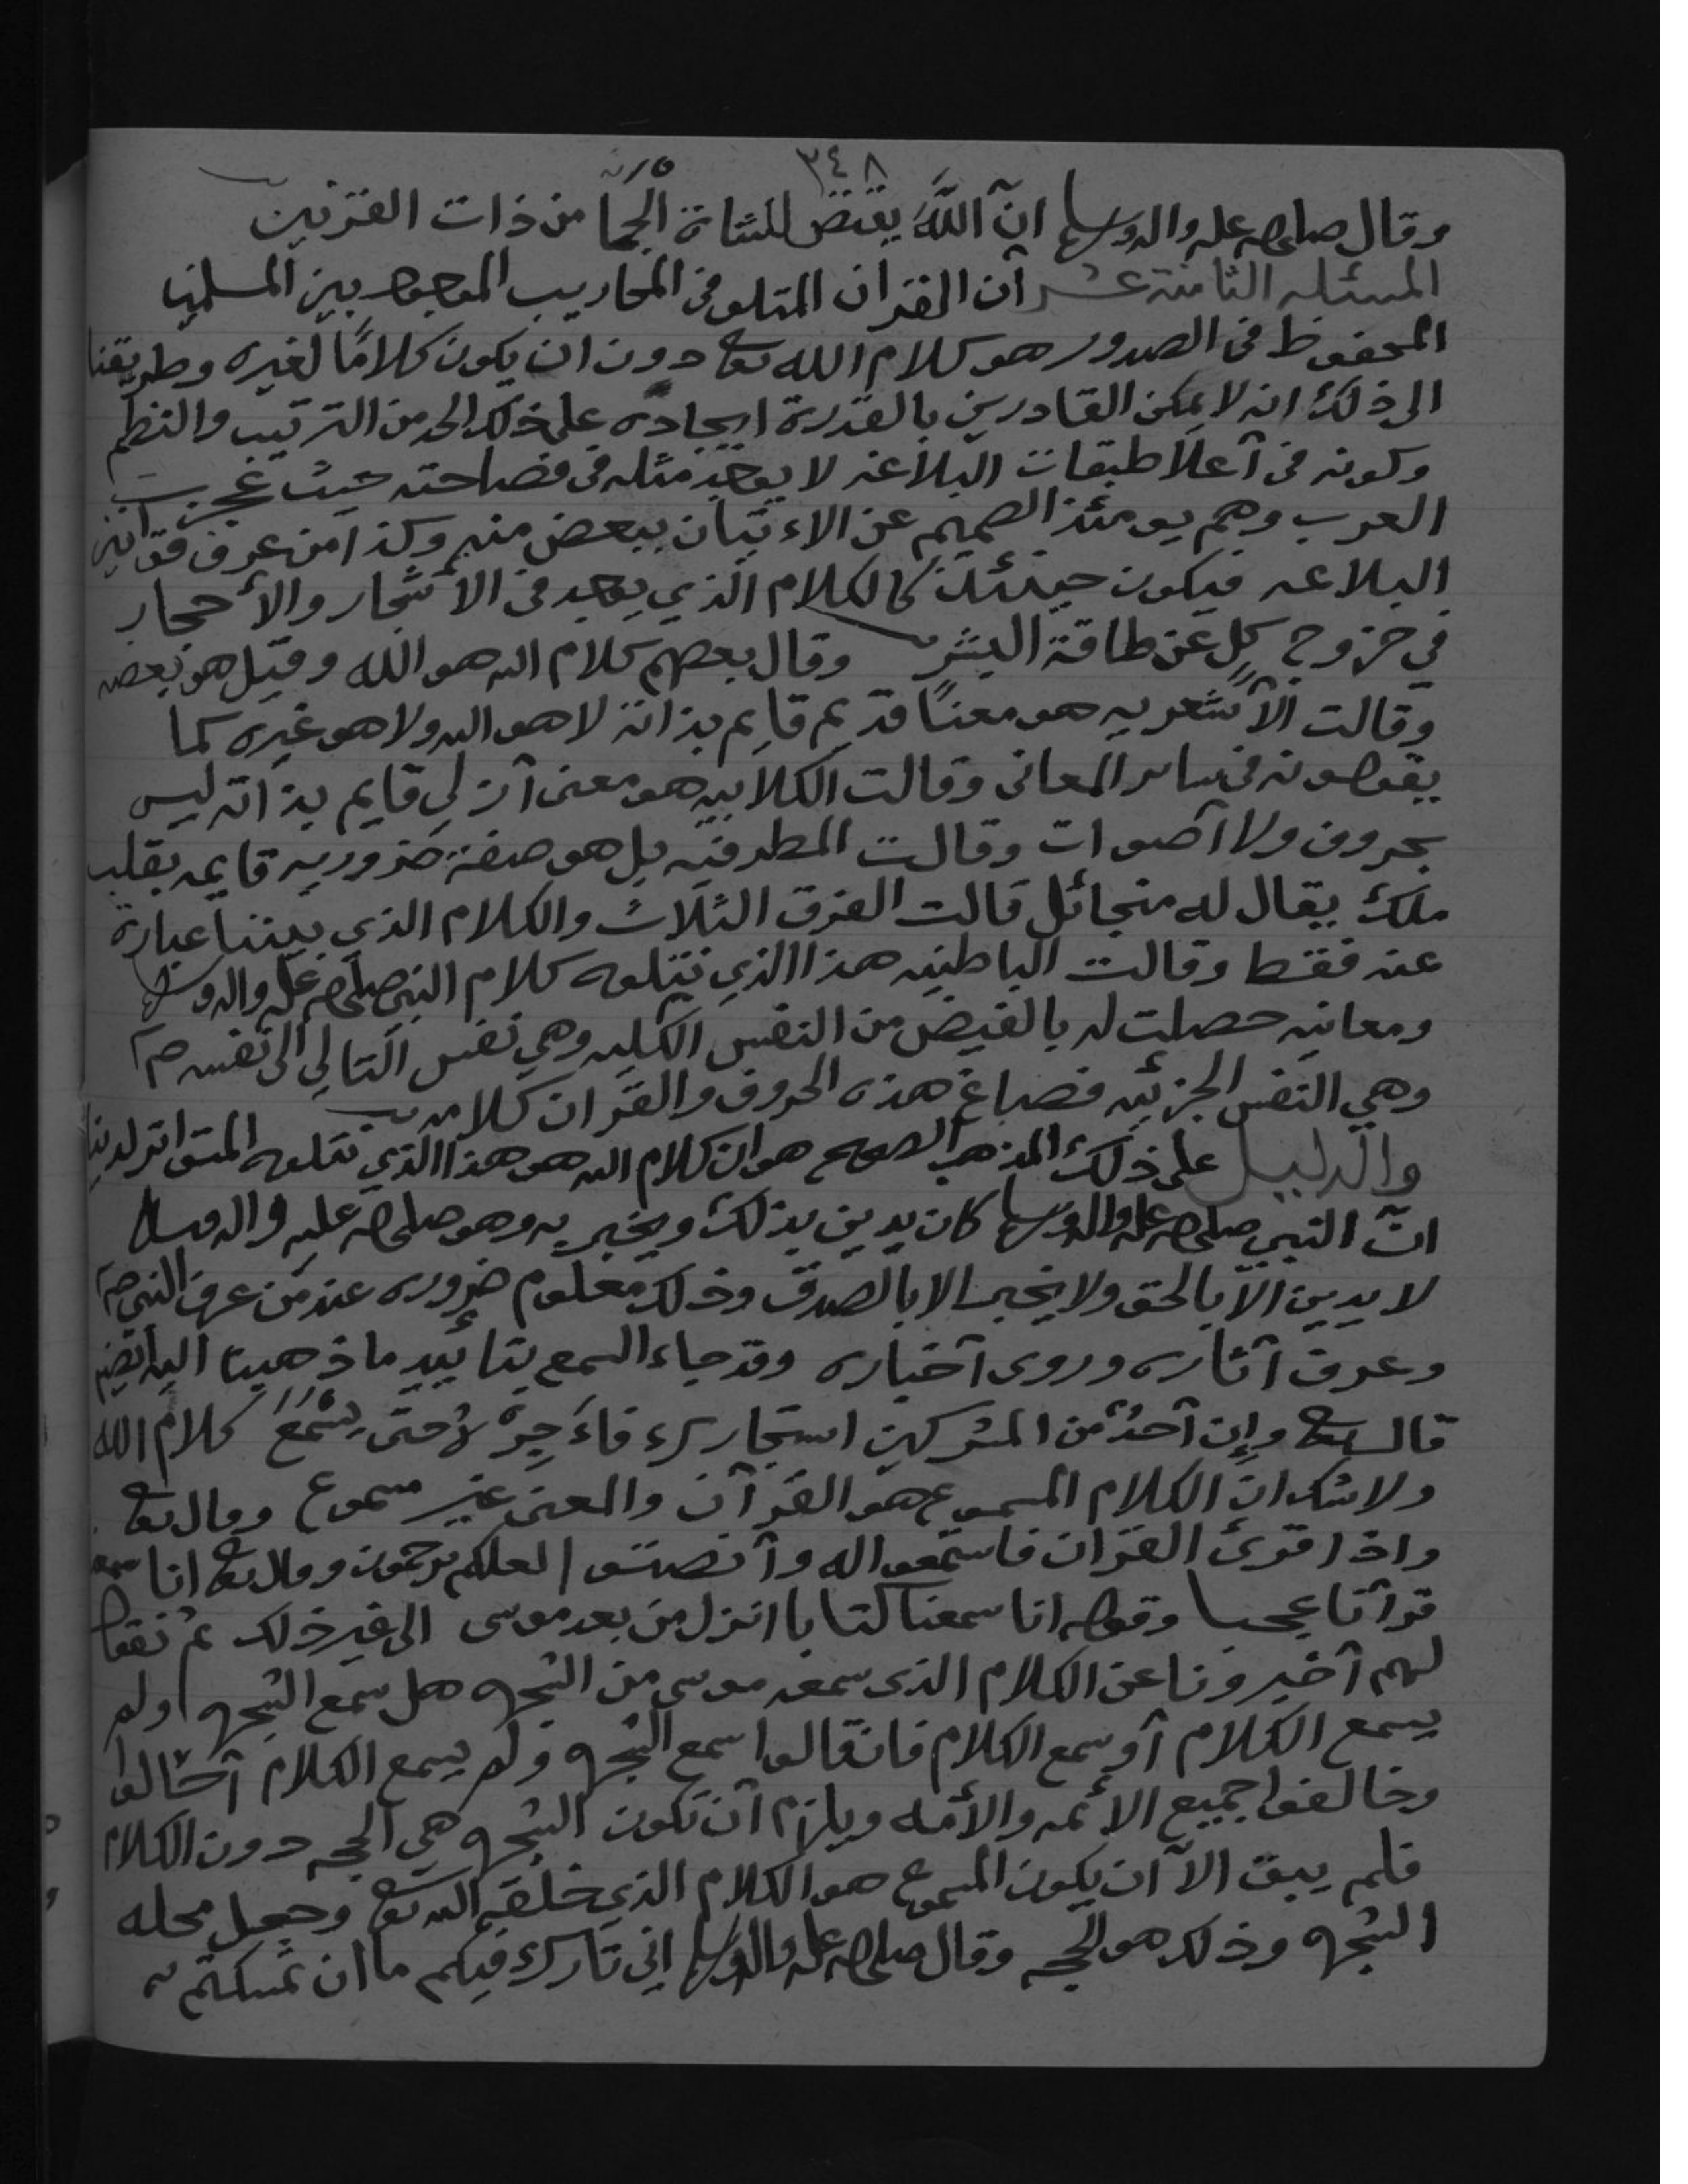 ٣٤٨
وقال صلى الله عليه واله وسلم ان الله يقتص للشاة الجما من ذات القرنين
المسئله الثامنة عشر ان القران المتلو في المحاريب الموجود بين المسلمين
المحفوظ في الصدور هو كلام الله تعا دون ان يكون كلامًا لغيره وطريقنا
الى ذلك انه لا يمكن القادرين بالقدرة ايجاده على ذلك الحد من الترتيب والنظم
وكونه في أعلا طبقات البلاغه لا يوجد مثله في فصاحته حيث عجزت
العرب وهم يومئذ الصميم عن الاءتيان ببعض منه وكذا من عرف قوانين
البلاغه فيكون حينئذ كالكلام الذي يوجد في الأشجار والأحجار
في خروج كل عن طاقة البشر وقال بعضهم كلام الله هو الله وقيل هو بعضه
وقالت الأشعريه هو معنًا قديم قايم بذاته لا هو الله ولا هو غيره كما
يقولونه في ساير المعاني وقالت الكلابيه هو معنى أزلي قايم بذاته ليس
بحروف ولا أصوات وقالت المطرفيه بل هو صفة ضروريه قايمه بقلب
ملك يقال له ميخائل قالت الفرق الثلاث والكلام الذي بيننا عبارة
عنه فقط وقالت الباطنيه هذا الذي نتلوه كلام النبي صلى الله عليه واله وسلم
ومعانيه حصلت له بالفيض من النفس الكليه وهي نفس التالي الى نفسه صم
وهي النفس الجزئيه فصاغ هذه الحروف والقران كلامه
والدليل على ذلك المذهب الصحيح هو ان كلام الله هو هذا الذي نتلوه المتواتر لدينا
انّ النبي صلى الله عليه واله وسلم كان يدين بذلك ويخبر به وهو صلى الله عليه واله وسلم
لا يدين الا بالحق ولا يخبر الا بالصدق وذلك معلوم ضروره عند من عرف النبي صم
وعرف آثاره وروى أخباره وقد جاء السمع بتأييد ما ذهبنا اليه ايضا
قال تعا وإن أحدٌ من المشركين استجارك فاءَجِرْهُ حتى يسْمَعَ كلامَ الله
ولا شك انّ الكلام المسموع هو القرآن والمعنى غير مسموع وقال تعا
واذا قرئ القران فاستمعوا له وأنصتوا لعلكم ترحمون وقال تعا انا سمعنا
قرآنا عجبا وقوله انا سمعنا كتابا انزل من بعد موسى الى غير ذلك ثم نقول
لهم أخبرونا عن الكلام الذي سمعه موسى من الشجره هل سمع الشجره ولم
يسمع الكلام أو سمع الكلام فان قالوا سمع الشجره ولم يسمع الكلام أحالوا
وخالفوا جميع الأئمه والأمه ويلزم أن تكون الشجره هي الحجه دون الكلام
فلم يبق الاّ ان يكون المسموع هو الكلام الذي خلقه الله تعا وجعل محله
الشجره وذلك هو الحجه وقال صلى الله عليه واله وسلم اني تارك فيكم ما ان تمسكتم به